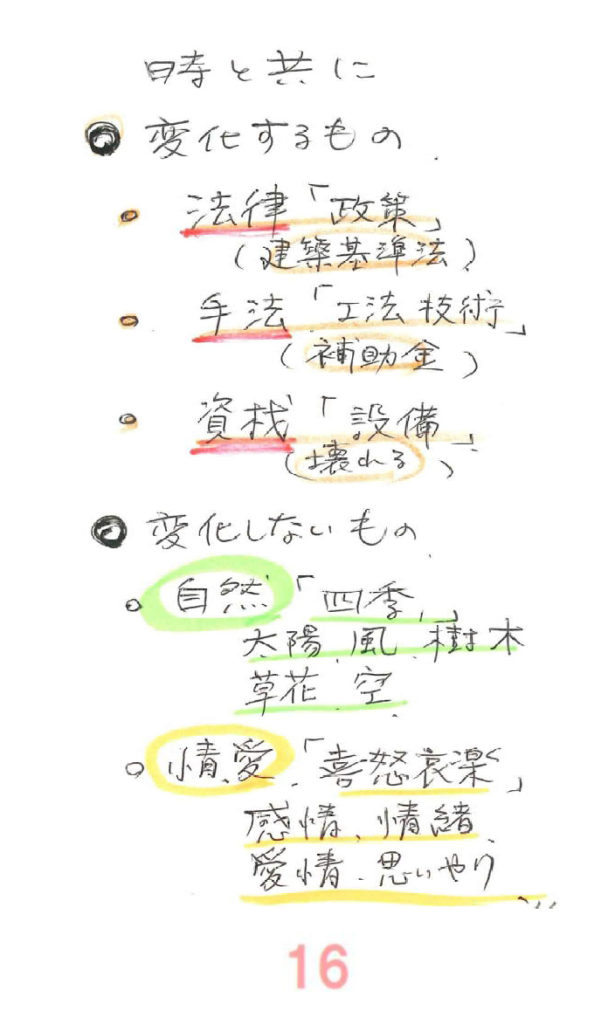 時と共に
変化するもの
法律「政策」
(建築基準法)
手法「工法技術」
(補助金)
資材「設備」
(壊れる)
変化しないもの
自然「四季、」
太陽、風、樹木
草花、空、
情愛、「喜怒哀楽」
感情、情緒
愛情、思いやり
16